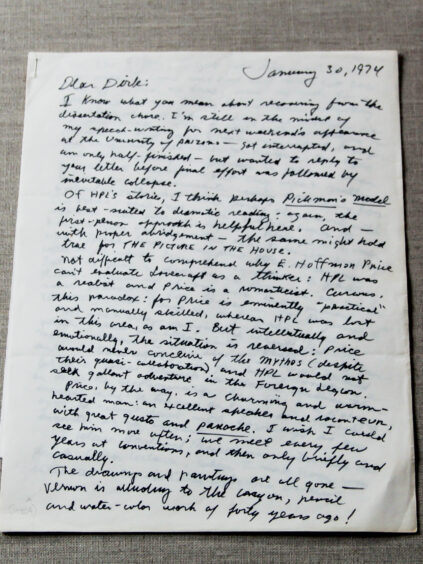 January 30, 1974
Dear Dirk:
I know what you mean about recovering from the
dissertation chore. I'm still in the midst of
my speech-writing for next weekend's appearance
at the University of Arizona — got interrupted, and
am only half-finished — but wanted to reply to
your letter before final effort was followed by
inevitable collapse.
Of HPL's stories, I think perhaps Pickman's Model
is best-suited to dramatic reading: again, the
first-person approach is helpful here. And —
with proper abridgement — the same might hold
true for THE PICTURE IN THE HOUSE.
Not difficult to comprehend why E. Hoffman Price
can't evaluate Lovecraft as a thinker: HPL was
a realist and Price is a romanticist. Curious,
this paradox: for Price is eminently "practical"
and manually skilled, whereas HPL was lost
in this area, as am I. But intellectually and
emotionally, the situation is reversed: Price
would never conceive of the MYTHOS (despite
their quasi-collaboration) and HPL would not
seek gallant adventure in the Foreign Legion.
Price, by the way, is a charming and warm-
hearted man: an excellent speaker and raconteur,
with great gusto and panache. I wish I could
see him more often; we meet every few
years at conventions, and then only briefly and
casually.
The drawings and paintings are all gone —
Vernon is alluding to the crayon, pencil
and water-color work of forty years ago!